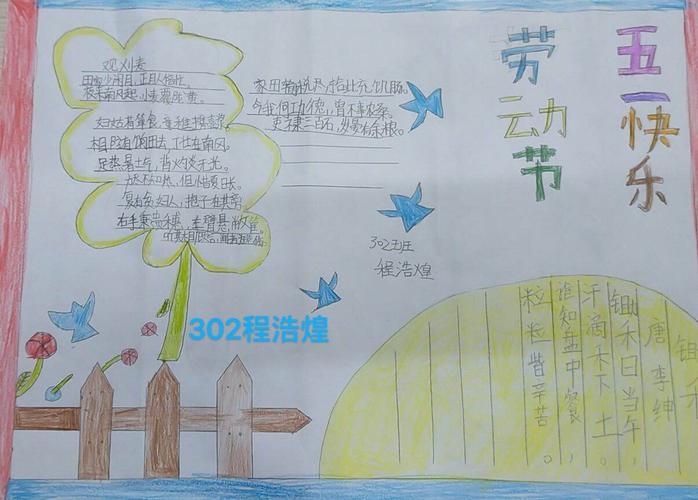 五一快乐
劳动节
观刈麦
田家少闲月,人倍忙。
夜来南风起,小麦覆陇黄。
妇姑荷箪食,童稚携壶浆。
相随饷田去,丁壮在南冈。
足蒸暑土气,背灼炎天光。
不知热,但惜夏日长。
复有贫妇人,抱子在其旁。
右手秉遗穗,左臂悬敝筐。
听其相顾言,
家田输税尽,拾此充饥肠。
今我何功德,曾不事农桑。
吏禄三百石,岁晏有余粮。
302班
程浩煌
302程浩煌
锄禾
唐 李绅
锄禾日当午,
汗滴禾下土。
谁知盘中餐,
粒粒皆辛苦。